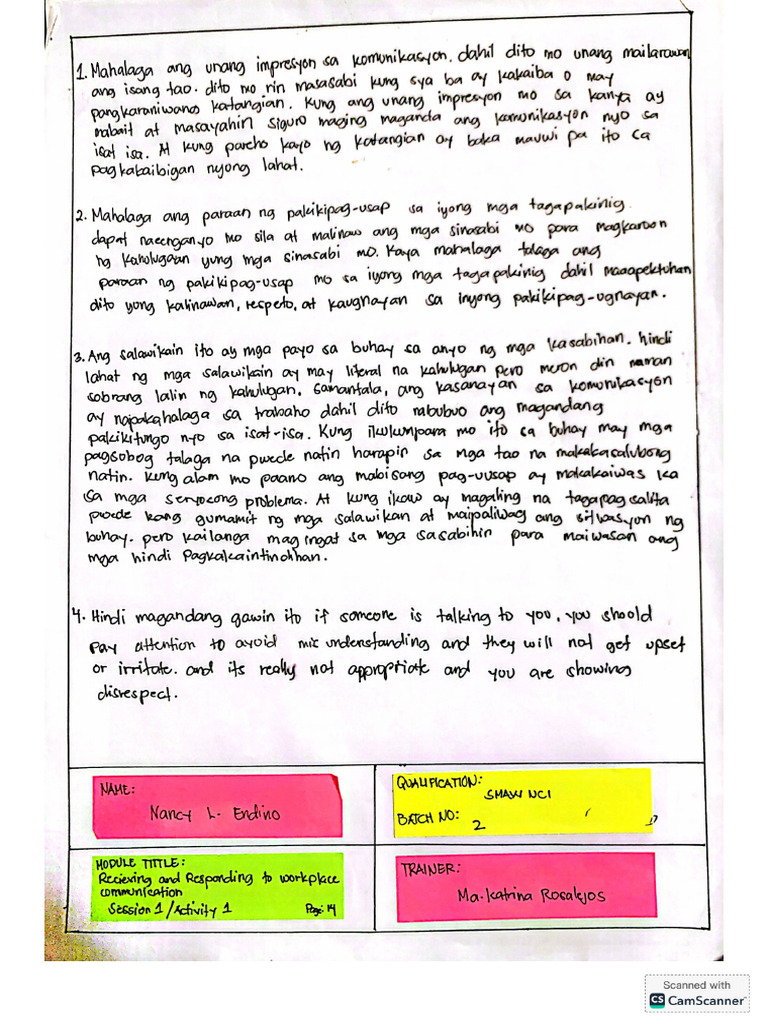 1. Mahalaga ang unang impresyon sa komunikasyon. dahil dito mo unang mailarawan
ang isang tao. dito mo rin masasabi kung sya ba ay kakaiba o may
pangkaraniwang katangian. Kung ang unang impresyon mo sa kanya ay
mabait at masayahin siguro maging maganda ang komunikasyon nyo sa
isat isa. At kung pareho kayo ng katangian ay baka mauwi pa ito sa
pagkakaibigan nyong lahat.
2. Mahalaga ang paraan ng pakikipag-usap sa iyong mga tagapakinig.
dapat naeenganyo mo sila at malinaw ang mga sinasabi mo para magkaroon
ng kahulugaan yung mga sinasabi mo. Kaya mahalaga talaga ang
paraan ng pakikipag-usap mo sa iyong mga tagapakinig dahil maaapektuhan
dito yung kalinawan, respeto, at kaugnayan sa inyong pakikipag-ugnayan.
3. Ang salawikain ito ay mga payo sa buhay sa anyo ng mga kasabihan. hindi
lahat ng mga salawikain ay may literal na kahulugan pero meron din naman
sobrang lalin ng kahulugan. Samantala, ang kasanayan sa komunikasyon
ay napakahalaga sa trabaho dahil dito nabubuo ang magandang
pakikitungo nyo sa isat-isa. Kung ikukumpara mo ito sa buhay may mga
pagsobog talaga na puwede natin harapin sa mga tao na makakasalubong
natin. kung alam mo paano ang mabisang pag-uusap ay makakaiwas ka
sa mga seryosong problema. At kung ikaw ay magaling na tagapagsalita
puwede kang gumamit ng mga salawikan at maipaliwag ang sitwasyon ng
buhay. pero kailanga mag ingat sa mga sasabihin para maiwasan ang
mga hindi Pagkakaintindihan.
4. Hindi magandang gawin ito if someone is talking to you, you should
pay attention to avoid mis understanding and they will not get upset
or irritate. and its really not appropriate and you are showing
disrespect.
NAME:
Nancy L. Endino
QUALIFICATION:
SMAW NC1
BATCH NO:
2
MODULE TITTLE:
Recieving and Responding to workplace
communication
Session 1 / Activity 1 Page: 14
TRAINER:
Ma. Katrina Rosalejos
Scanned with
CS CamScanner